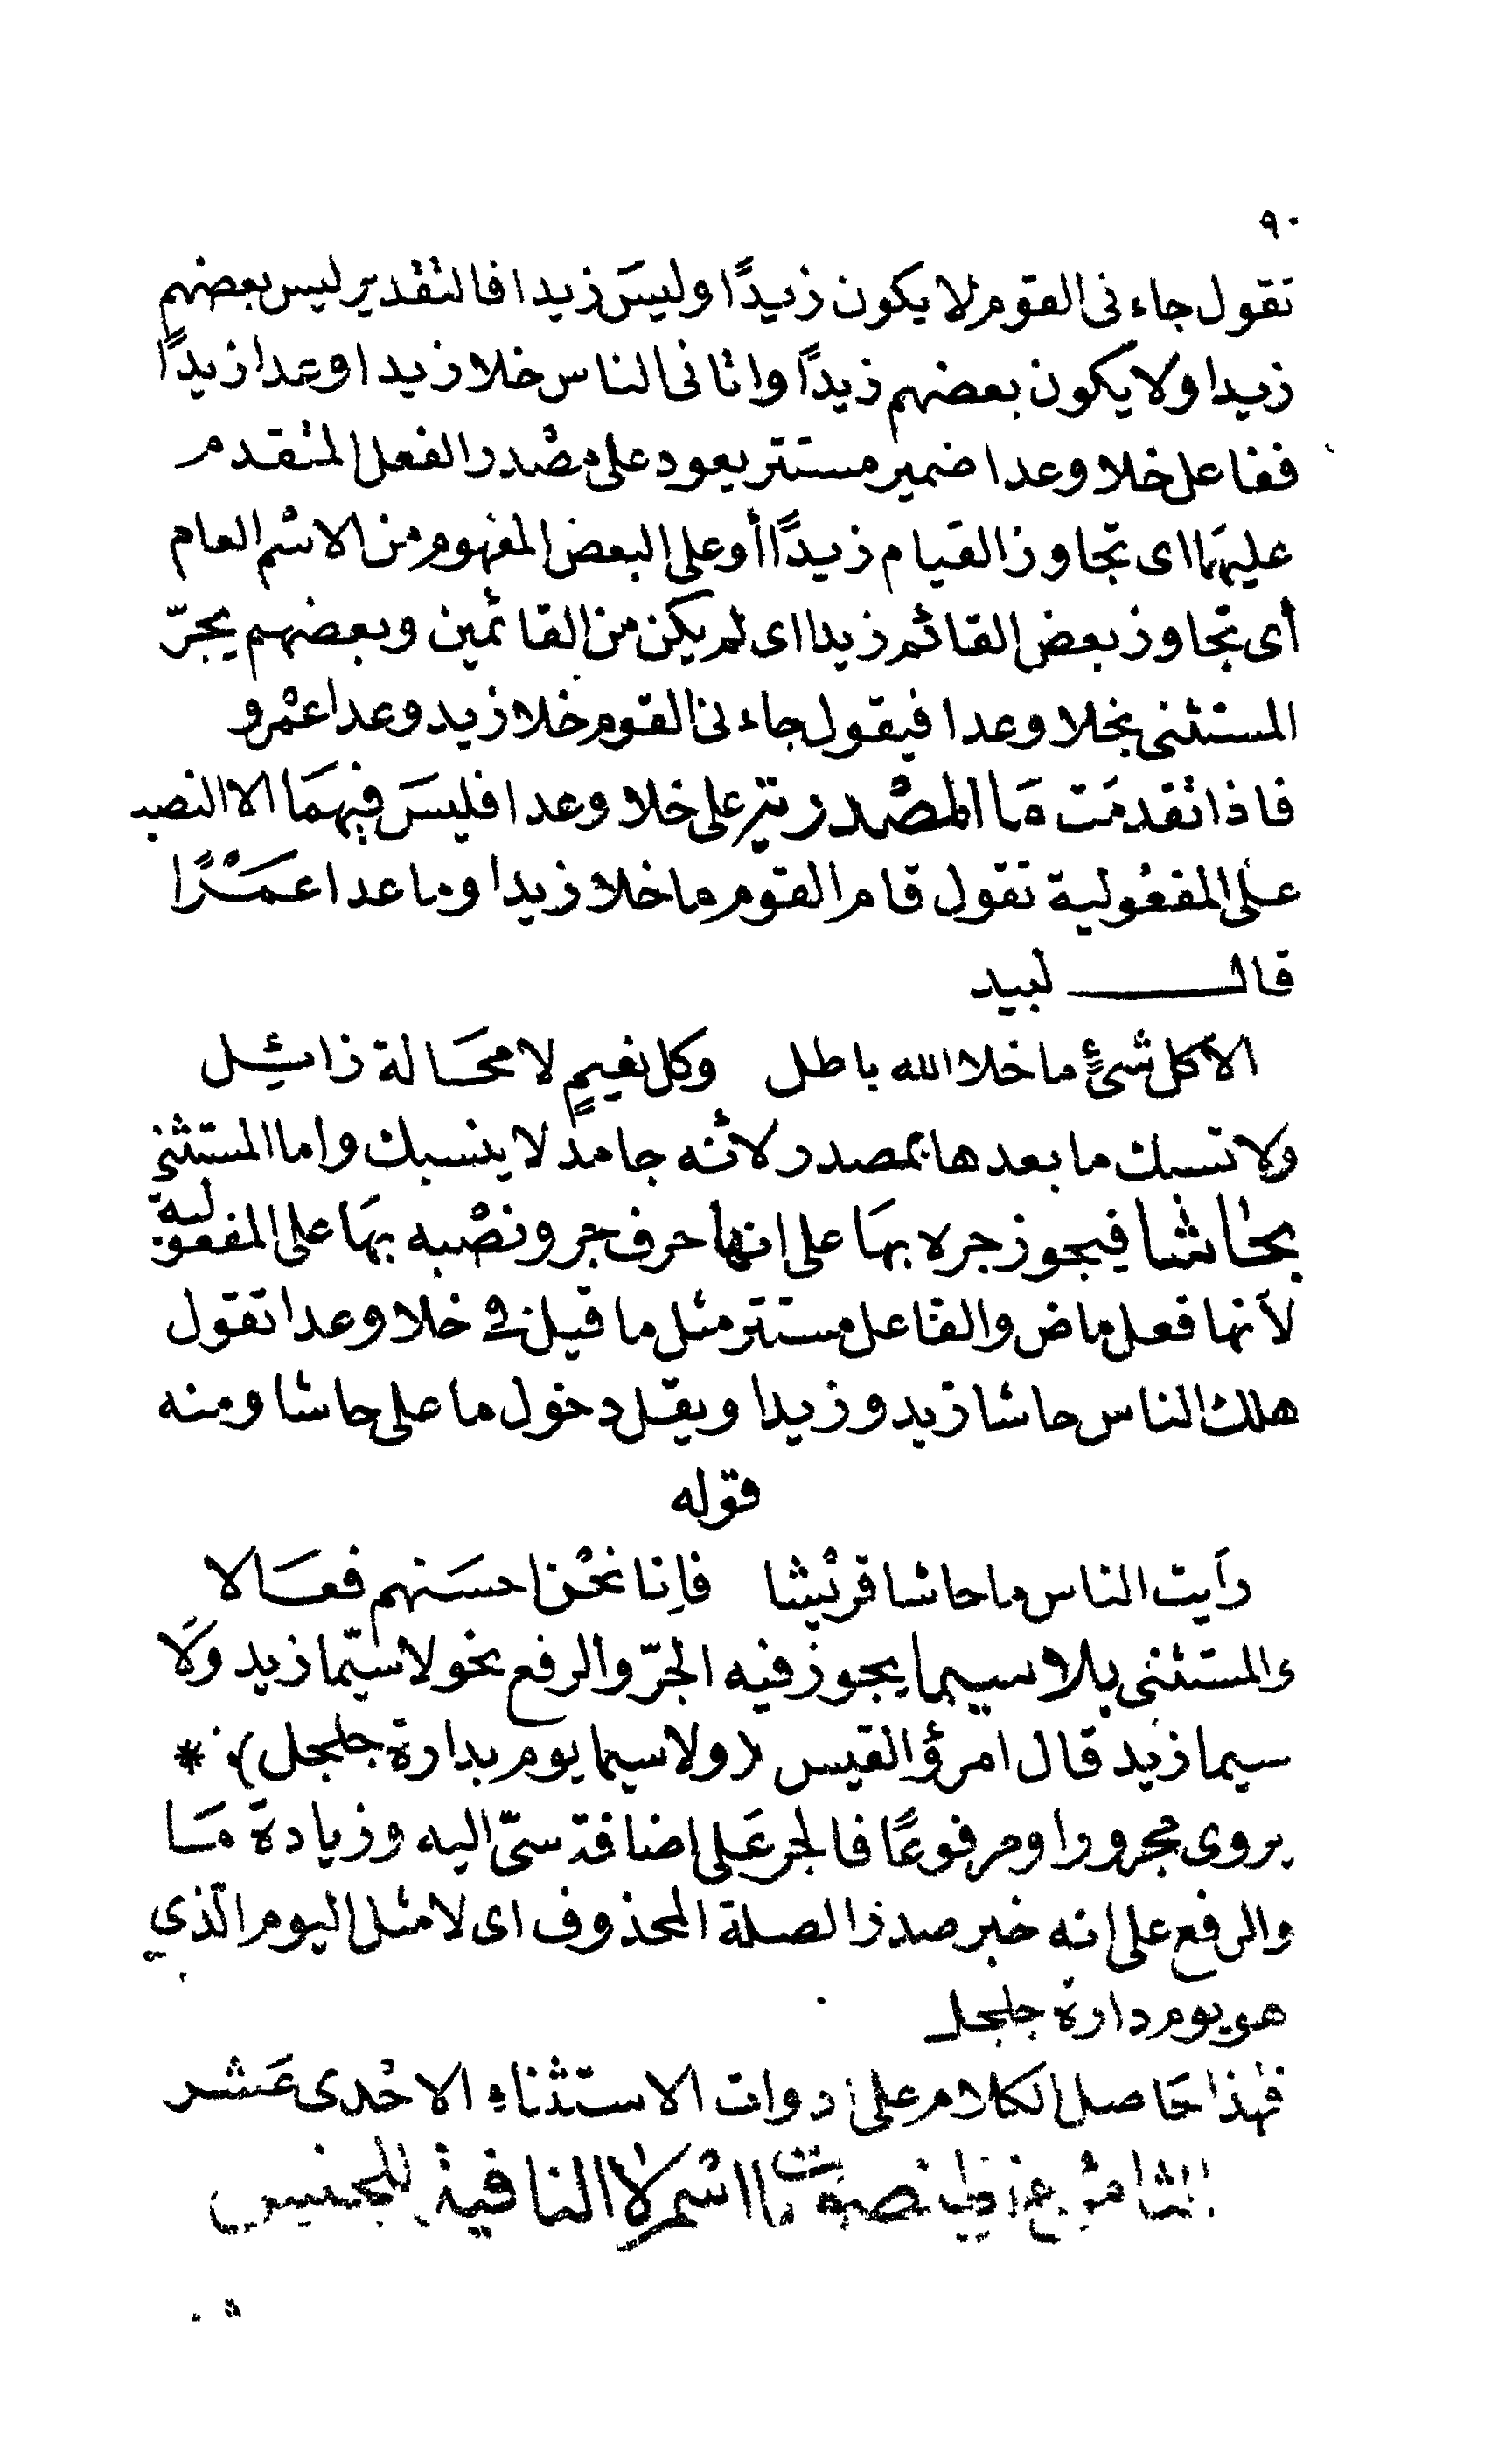 ٩٠
تقول جاءنى القوم لا يكون زيدًا وليسَ زيدا فالتقدير ليس بعضهم
زيدا ولا يكون بعضهم زيدًا واتانى الناس خلا زيدا وعدا زيدًا
ففاعل خلا وعدا ضمير مستتر يعود على مصْدر الفعل المتقدم
عليهمَا اى تجاوز القيام زيدًا أو على البعض المفهوم من الاسْم العام
أى تجاوز بعض القائم زيدا اى لم يكن من القائمين وبعضهم يجرّ
المستثنى بخلا وعدا فيقول جاءنى القوم خلا زيد وعدا عمْرو
فاذا تقدمَت مَا المصْدرية على خلا وعدا فليسَ فيهمَا الا النصب
على المفعُولية تقول قام القوم ما خلا زيدا وما عدا عمَرْا
قال لبيد
الا كل شئٍ ما خلا الله باطل وكل نعيمٍ لا محَالة زائِل
ولا تسبك ما بعدها بمصدر لأنه جامد لا ينسبك واما المستثنى
بحاشا فيجوز جره بهَا على انها حرف جر ونصْبه بهَا على المفعولية
لأنها فعل ماض والفاعل مستتر مثل ما قيل فى خلا وعدا تقول
هلك الناس حاشا زيد وزيدا ويقل دخول ما على حاشا ومنه
قوله
رأيت الناس ما حاشا قريْشا فاِنا نحْن احسَنهم فعَالا
والمستثنى بلا سيما يجوز فيه الجرّ والرفع نحو لا سيّما زيد ولَا
سيما زيد قال امرؤ القيس (ولا سيما يوم بدارة جلجل) *
يروى مجرورا ومرفوعًا فالجر عَلى اضافة سىّ اليه وزيادة مَا
والرفع على انه خبر صدر الصلة المحذوف اى لا مثل اليوم الّذي
هو يوم دارة جلجل
فهٰذا حَاصل الكلام على ادوات الاستثناء الاحْدى عَشر
الثامن عشر من المنصوبات اسْم لا النافية للجنس